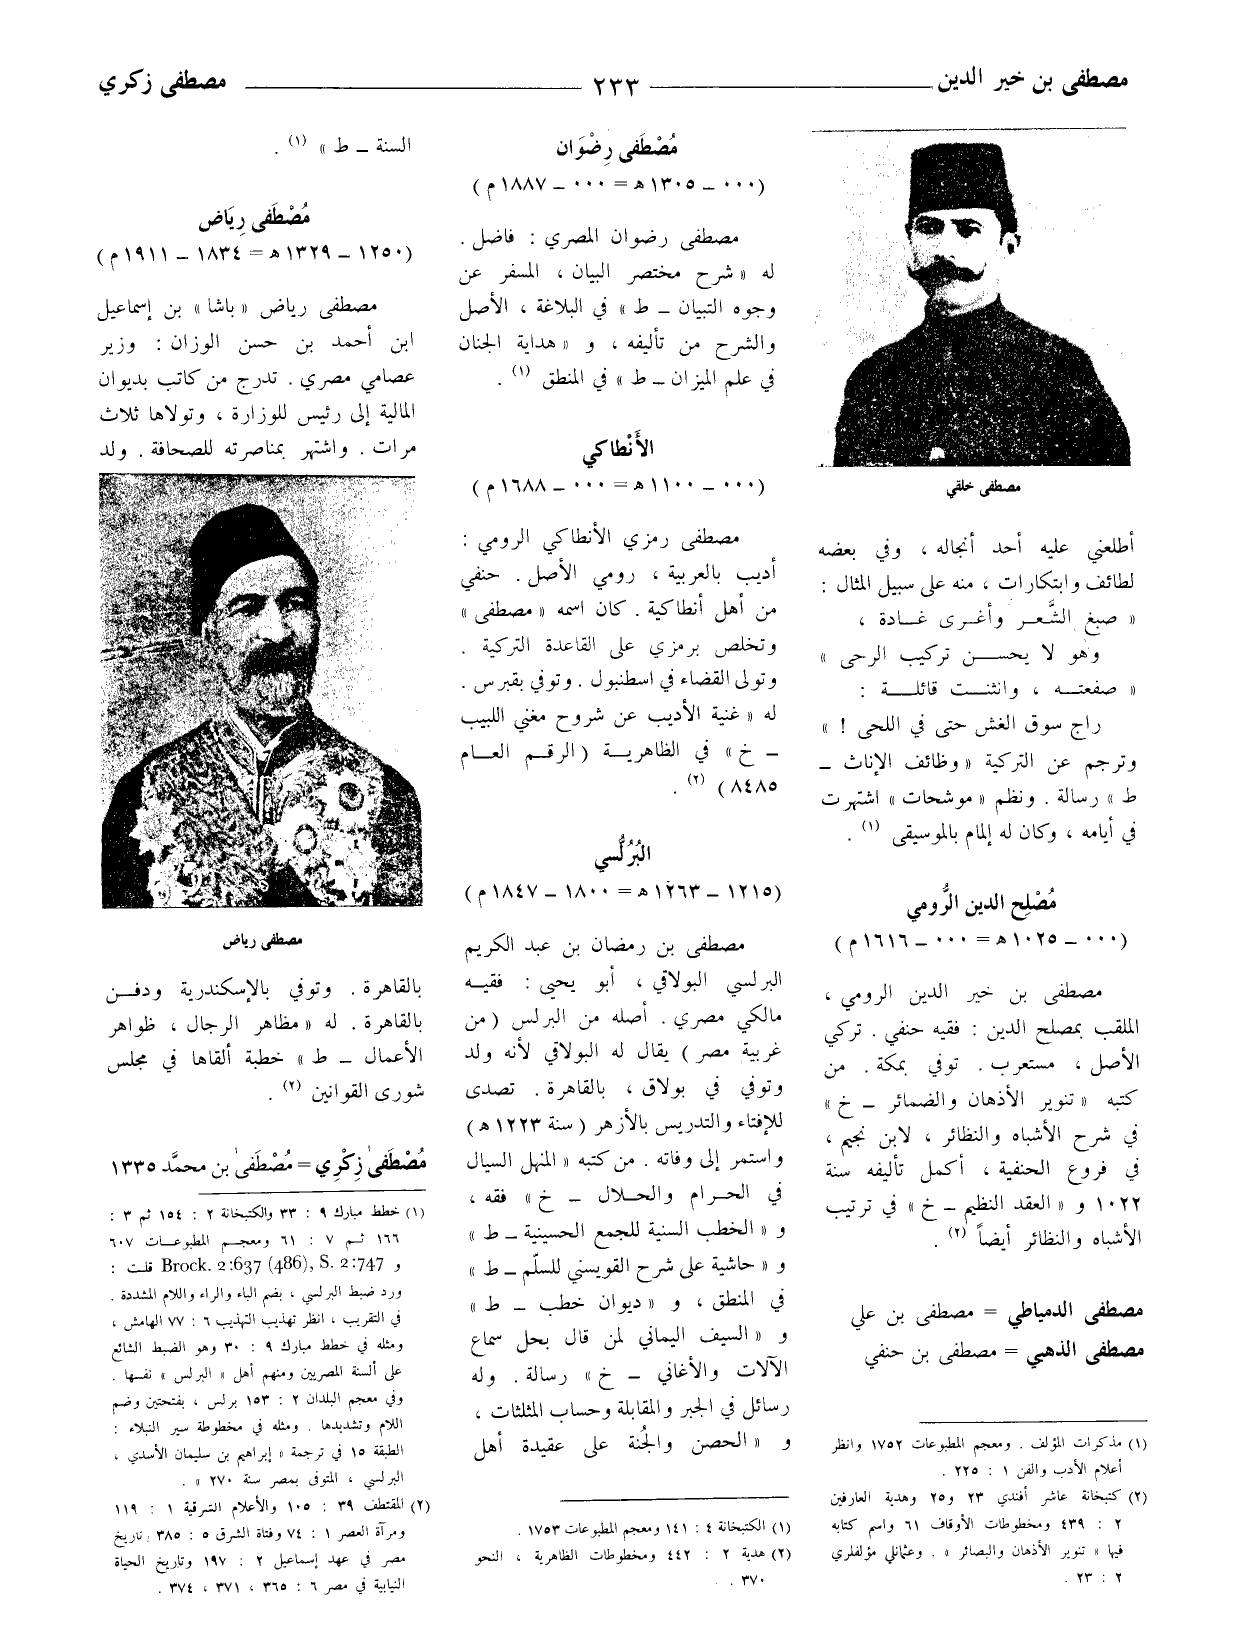 مصطفى بن خير الدين ٢٣٣ مصطفى زكري
مصطفى خلقي
أطلعني عليه أحد أنجاله ، وفي بعضه
لطائف وابتكارات ، منه على سبيل المثال :
« صبغ الشَّعر وأغرى غادة ،
وهو لا يحسن تركيب الرحى »
« صفعته ، وانثنت قائلة :
راج سوق الغش حتى في اللحى ! »
وترجم عن التركية « وظائف الإناث ـ
ط » رسالة . ونظم « موشحات » اشتهرت
في أيامه ، وكان له إلمام بالموسيقى (١) .
مُصْلِح الدين الرُّومي
(٠٠٠ ـ ١٠٢٥ هـ = ٠٠٠ ـ ١٦١٦ م)
مصطفى بن خير الدين الرومي ،
الملقب بمصلح الدين : فقيه حنفي . تركي
الأصل ، مستعرب . توفي بمكة . من
كتبه « تنوير الأذهان والضمائر ـ خ »
في شرح الأشباه والنظائر ، لابن نجيم ،
في فروع الحنفية ، أكمل تأليفه سنة
١٠٢٢ و « العقد النظيم ـ خ » في ترتيب
الأشباه والنظائر أيضاً (٢) .
مصطفى الدمياطي = مصطفى بن علي
مصطفى الذهبي = مصطفى بن حنفي
(١) مذكرات المؤلف . ومعجم المطبوعات ١٧٥٢ وانظر
أعلام الأدب والفن ١ : ٢٢٥ .
(٢) كتبخانة عاشر أفندي ٢٣ و٢٥ وهدية العارفين
٢ : ٤٣٩ ومخطوطات الأوقاف ٦١ واسم كتابه
فيها « تنوير الأذهان والبصائر » . وعثمانلي مؤلفلري
٢ : ٢٣ .
مُصْطَفى رِضْوَان
(٠٠٠ ـ ١٣٠٥ هـ = ٠٠٠ ـ ١٨٨٧ م)
مصطفى رضوان المصري : فاضل .
له « شرح مختصر البيان ، المسفر عن
وجوه التبيان ـ ط » في البلاغة ، الأصل
والشرح من تأليفه ، و « هداية الجنان
في علم الميزان ـ ط » في المنطق (١) .
الأَنْطاكي
(٠٠٠ ـ ١١٠٠ هـ = ٠٠٠ ـ ١٦٨٨ م)
مصطفى رمزي الأنطاكي الرومي :
أديب بالعربية ، رومي الأصل . حنفي
من أهل أنطاكية . كان اسمه « مصطفى »
وتخلص برمزي على القاعدة التركية .
وتولى القضاء في اسطنبول . وتوفي بقبرس .
له « غنية الأديب عن شروح مغني اللبيب
ـ خ » في الظاهرية ( الرقم العام
٨٤٨٥ ) (٢) .
البُرُلُّسي
(١٢١٥ ـ ١٢٦٣ هـ = ١٨٠٠ ـ ١٨٤٧ م)
مصطفى بن رمضان بن عبد الكريم
البرلسي البولاقي ، أبو يحيى : فقيه
مالكي مصري . أصله من البرلس ( من
غربية مصر ) يقال له البولاقي لأنه ولد
وتوفي في بولاق ، بالقاهرة . تصدى
للإفتاء والتدريس بالأزهر ( سنة ١٢٢٣ هـ )
واستمر إلى وفاته . من كتبه « المنهل السيال
في الحرام والحلال ـ خ » فقه ،
و « الخطب السنية للجمع الحسينية ـ ط »
و « حاشية على شرح القويسني للسلّم ـ ط »
في المنطق ، و « ديوان خطب ـ ط »
و « السيف اليماني لمن قال بحل سماع
الآلات والأغاني ـ خ » رسالة . وله
رسائل في الجبر والمقابلة وحساب المثلثات ،
و « الحصن والجُنة على عقيدة أهل
(١) الكتبخانة ٤ : ١٤١ ومعجم المطبوعات ١٧٥٣ .
(٢) هدية ٢ : ٤٤٢ ومخطوطات الظاهرية ، النحو
٣٧٠ .
السنة ـ ط » (١) .
مُصْطَفى رِيَاض
(١٢٥٠ ـ ١٣٢٩ هـ = ١٨٣٤ ـ ١٩١١ م)
مصطفى رياض « باشا » بن إسماعيل
ابن أحمد بن حسن الوزان : وزير
عصامي مصري . تدرج من كاتب بديوان
المالية إلى رئيس للوزارة ، وتولاها ثلاث
مرات . واشتهر بمناصرته للصحافة . ولد
مصطفى رياض
بالقاهرة . وتوفي بالإسكندرية ودفن
بالقاهرة . له « مظاهر الرجال ، ظواهر
الأعمال ـ ط » خطبة ألقاها في مجلس
شورى القوانين (٢) .
مُصْطَفىٰ زِكْرِي = مُصْطَفىٰ بن محمَّد ١٣٣٥
(١) خطط مبارك ٩ : ٣٣ والكتبخانة ٢ : ١٥٤ ثم ٣ :
١٦٦ ثم ٧ : ٦١ ومعجم المطبوعات ٦٠٧
و Brock. 2:637 (486), S. 2:747 قلت :
ورد ضبط البرلسي ، بضم الباء والراء واللام المشددة .
في التقريب ، انظر تهذيب التهذيب ٦ : ٧٧ الهامش ،
ومثله في خطط مبارك ٩ : ٣٠ وهو الضبط الشائع
على ألسنة المصريين ومنهم أهل « البرلس » نفسها .
وفي معجم البلدان ٢ : ١٥٣ برلس ، بفتحتين وضم
اللام وتشديدها . ومثله في مخطوطة سير النبلاء :
الطبقة ١٥ في ترجمة « إبراهيم بن سليمان الأسدي ،
البرلسي ، المتوفى بمصر سنة ٢٧٠ » .
(٢) المقتطف ٣٩ : ١٠٥ والأعلام الشرقية ١ : ١١٩
ومرآة العصر ١ : ٧٤ وفتاة الشرق ٥ : ٣٨٥ وتاريخ
مصر في عهد إسماعيل ٢ : ١٩٧ وتاريخ الحياة
النيابية في مصر ٦ : ٣٦٥ ، ٣٧١ ، ٣٧٤ .